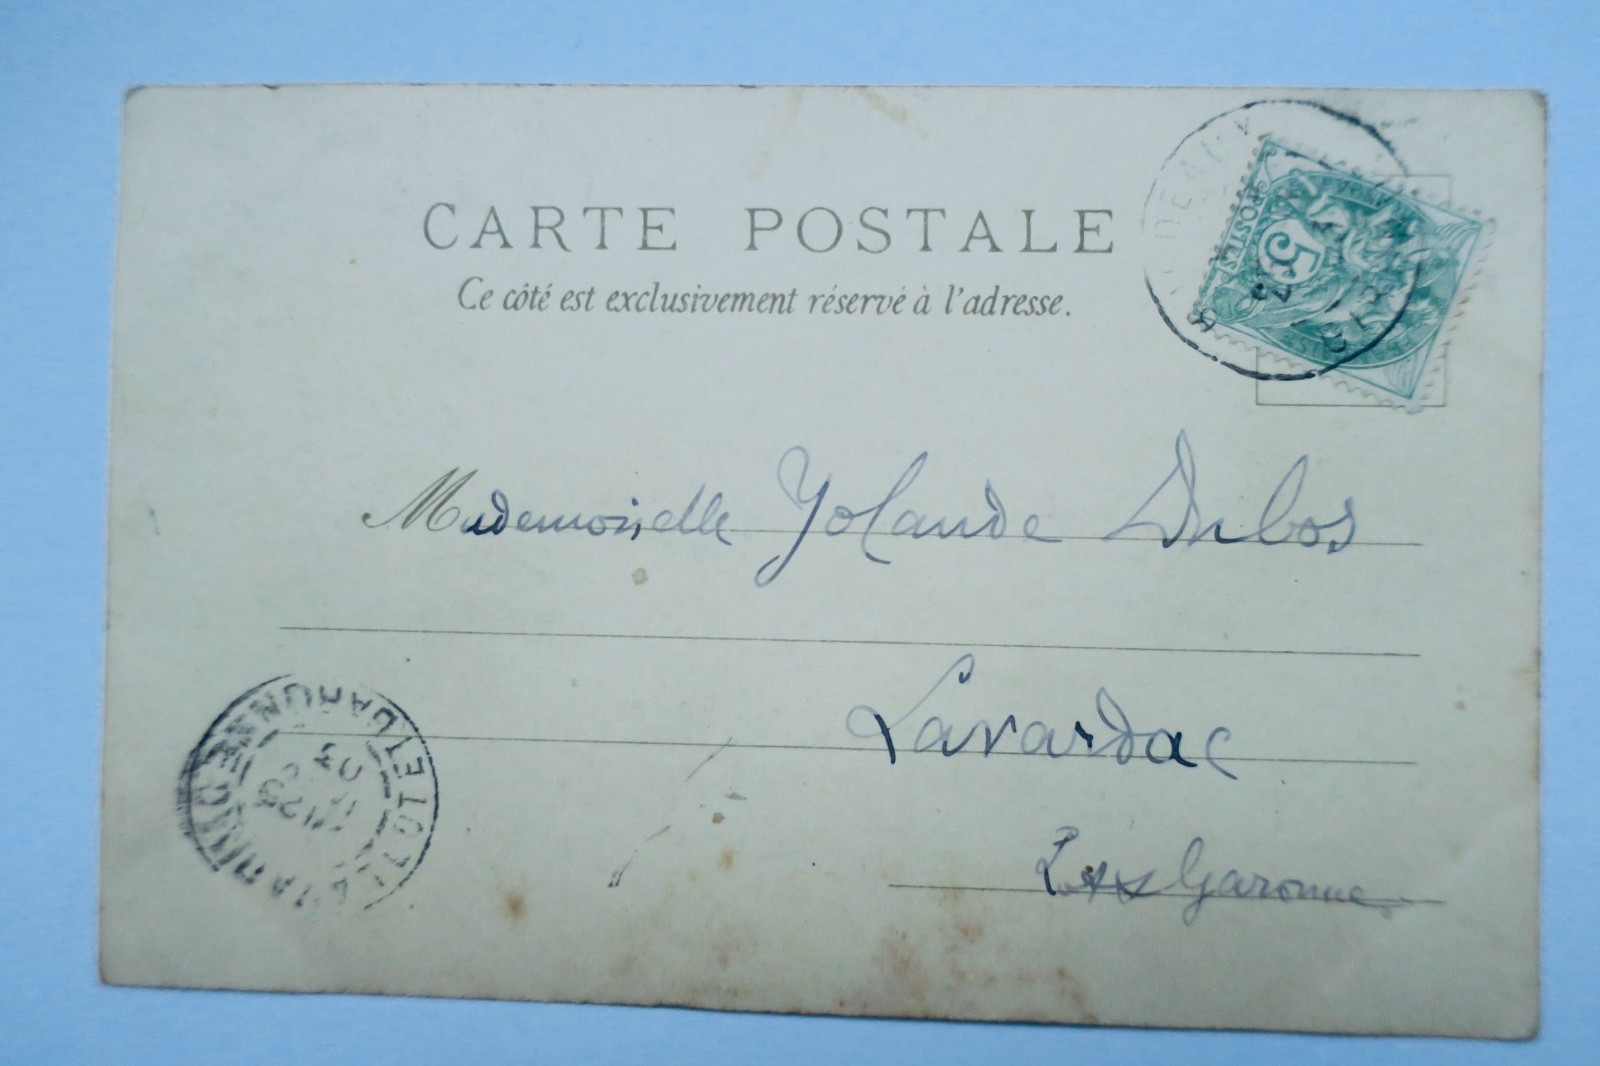 CARTE POSTALE
Ce côté est exclusivement réservé à l'adresse.
POSTES
5
Mademoiselle Yolande Dubos
Lavardac
Lot & Garonne
LOT-ET-GARONNE
03